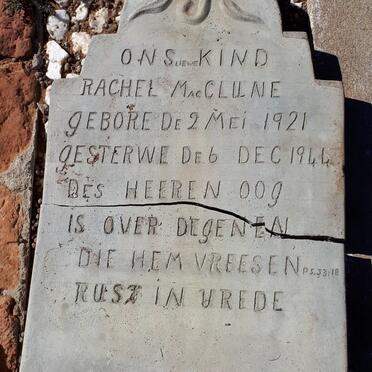 ONS LIEWE KIND
RACHEL MACCLUNE
GEBORE DE 2 MEI 1921
GESTERWE DE 6 DEC 1944
DES HEEREN OOG
IS OVER DEGENEN
DIE HEM VREESEN PS.33:18
RUST IN VREDE